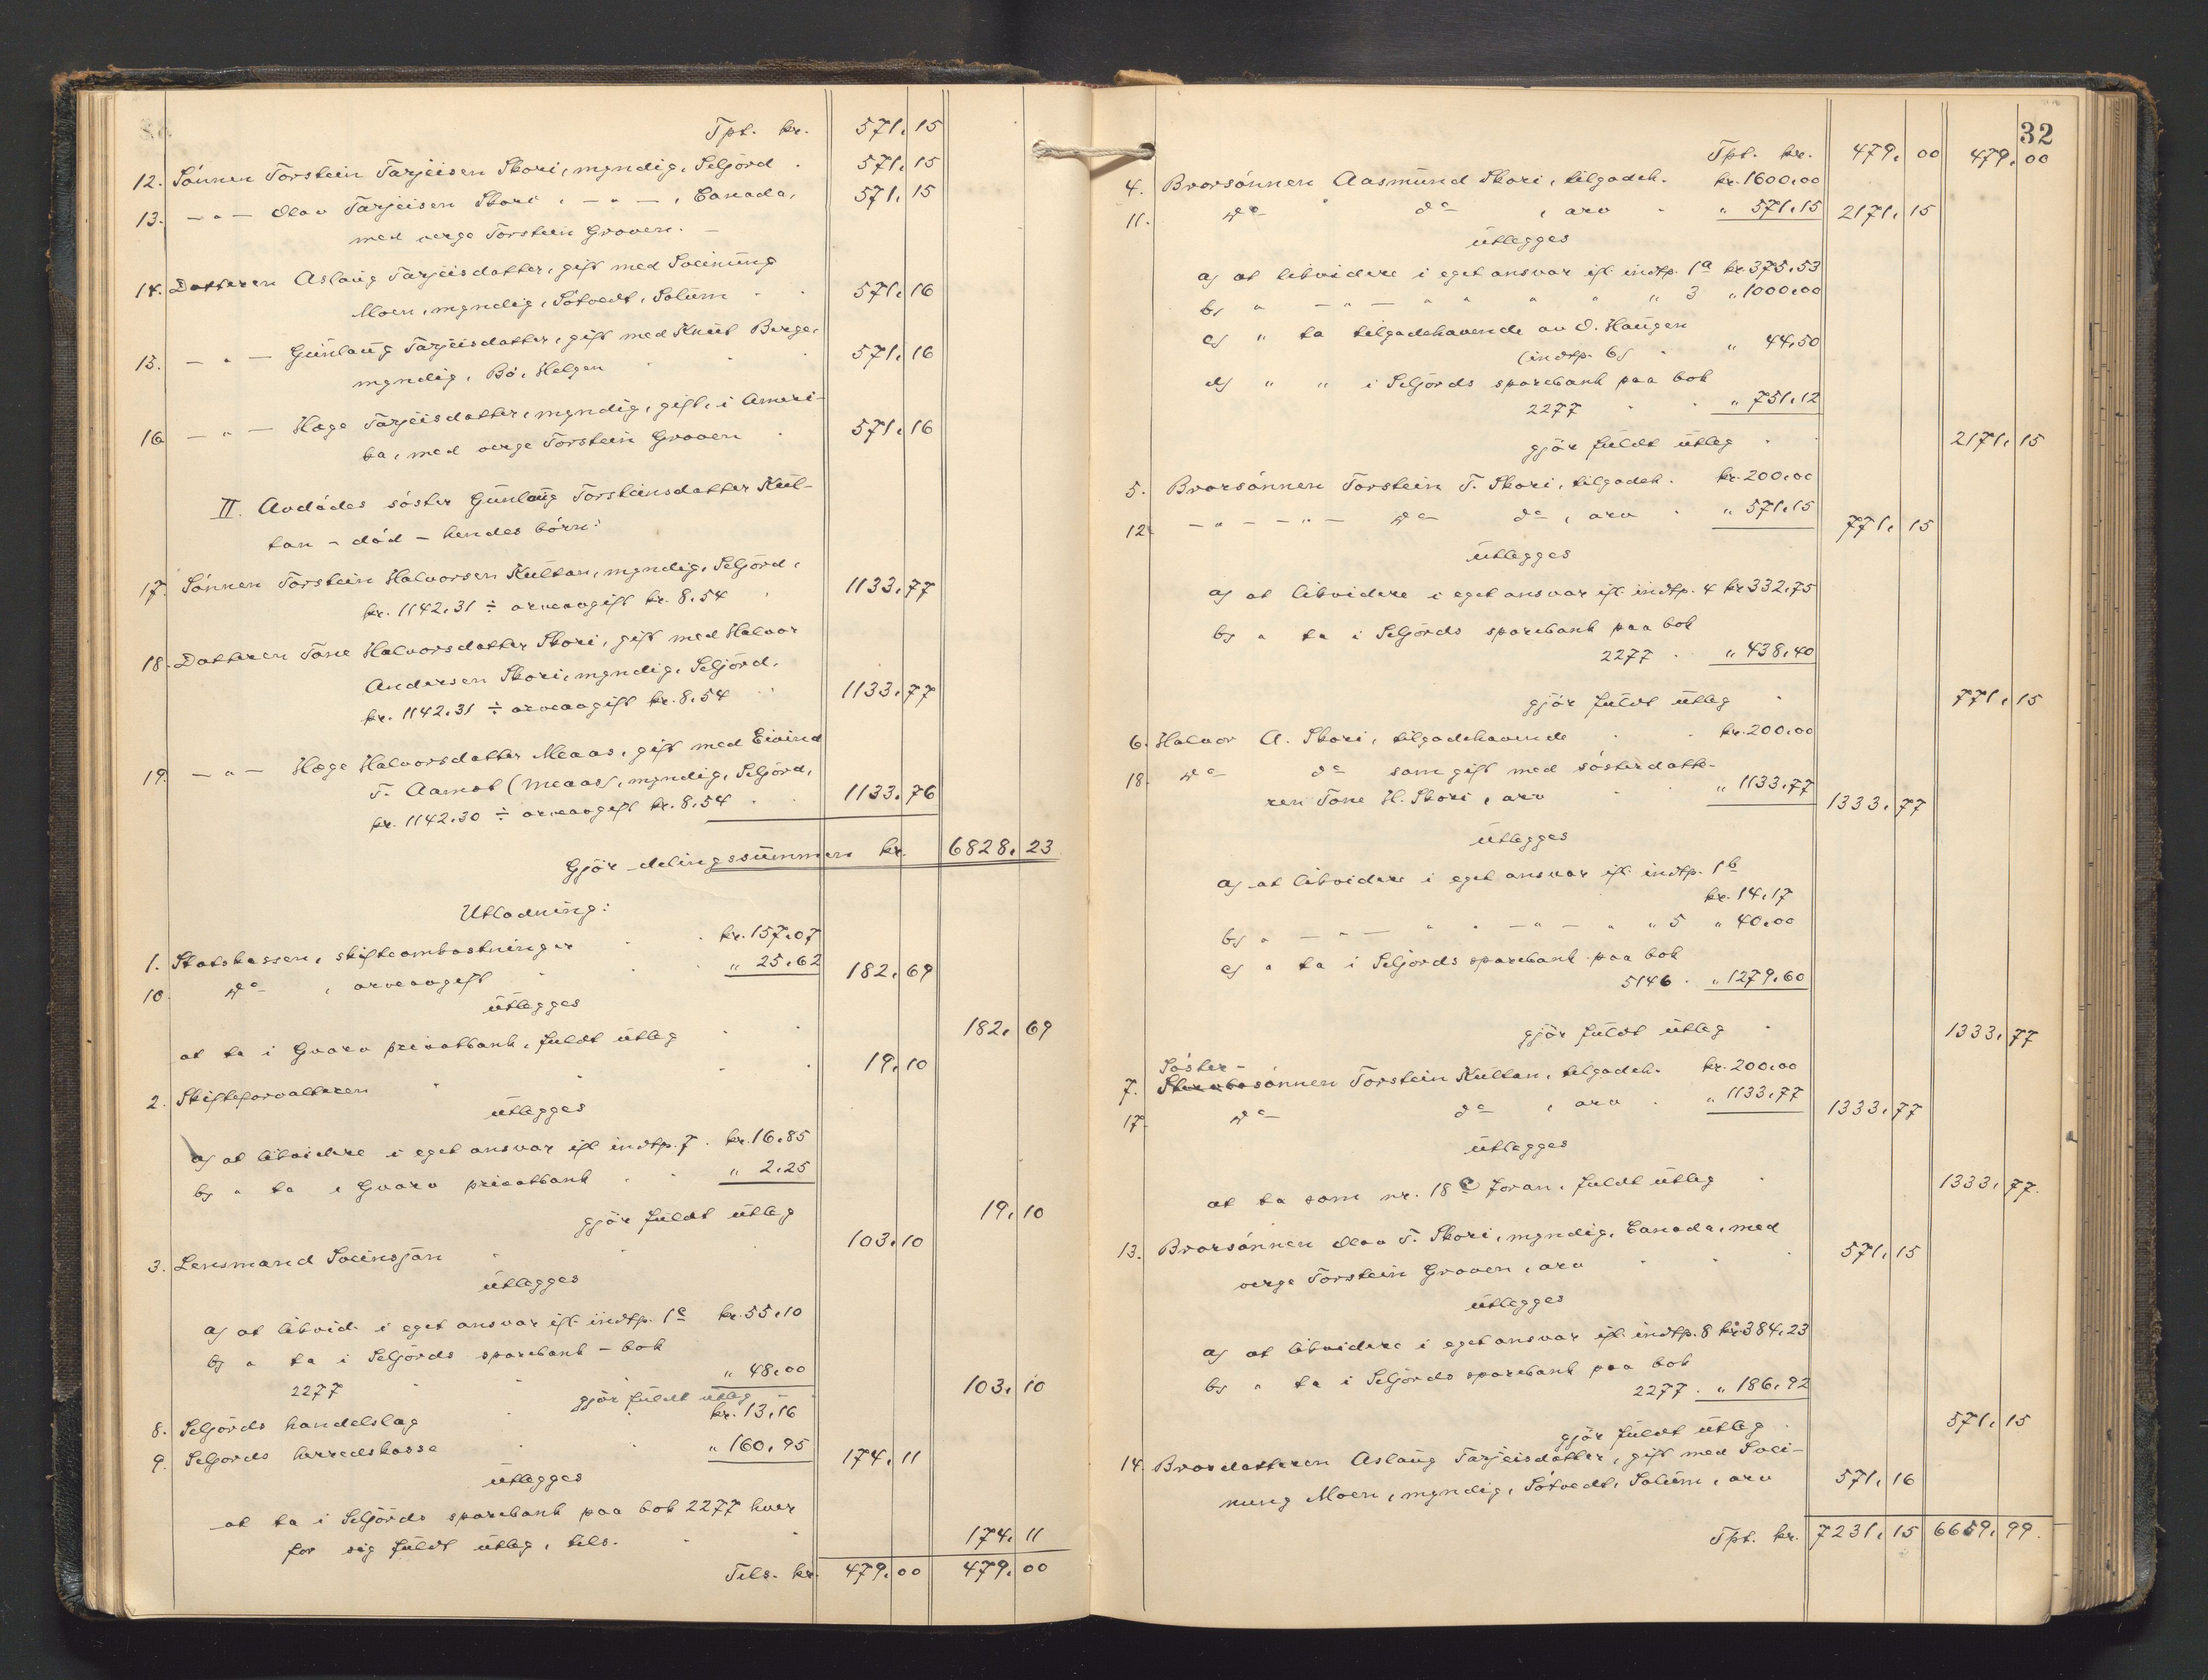 Tpt. kr. 571,15
12. Sönnen Torstein Tarjeisen Skori, myndig, Seljord . 571,15
13. -"- Olav Tarjeisen Skori, -"-, Canada, 571,15
med verge Torstein Groven. -
14. Datteren Aslaug Tarjeisdatter, gift med Sveinung
Moen, myndig, Sötvedt, Solum . . 571,16
15. -"- Gunlaug Tarjeisdatter, gift med Knut Berge,
myndig, Bö, Helgen . . . 571,16
16 -"- Hæge Tarjeisdatter, myndig, gift, i Ameri-
ka, med verge Torstein Groven . 571,16
II. Avdödes söster Gunlaug Torsteinsdatter Kul-
tan - död - hendes börn:
17. Sönnen Torstein Halvorsen Kultan, myndig, Seljord,
kr. 1142,31 ÷ arveavgift kr. 8,54 . 1133,77
18. Datteren Tone Halvorsdatter Skori, gift med Halvor
Andersen Skori, myndig, Seljord,
kr. 1142,31 ÷ arveavgift kr. 8,54 . 1133,77
19. -"- Hæge Halvorsdatter Meaas, gift med Eivind
T. Aamot (Meaas), myndig, Seljord,
kr. 1142,30 ÷ arveavgift kr. 8,54 . . 1133,76
Gjör delingssummen kr. 6828,23
Utlodning:
1. Statskassen, skifteomkostninger . . kr. 157,07
10. Do , arveavgift . . " 25,62 182,69
utlegges
at ta i Gvarv privatbank, fuldt utlæg . . 182,69
2. Skifteforvalteren . . . . 19,10
utlegges
a) at likvidere i eget ansvar ifl. indtp. 7 . kr. 16,85
b) " ta i Gvarv privatbank . . " 2,25
gjör fuldt utlæg 19,10
3. Lensmand Sveinsjon . . . 103,10
utlegges
a) at likvid. i eget ansvar ifl. indtp. 1c kr. 55,10
b) " ta i Seljords sparebank - bok
2277 . " 48,00
gjör fuldt utlæg - . 103,10
8. Seljords handelslag . . kr. 13,16
9. Seljords herredskasse . . " 160,95 174,11
utlegges
at ta i Seljords sparebank paa bok 2277 hver
for sig fuldt utlæg, tils. . . 174,11
Tils. kr. 479,00 479,00
32
Tpt. kr. 479,00 479,00
4. Brorsönnen Aasmund Skori, tilgodeh. kr. 1600,00
11. Do do , arv . " 571,15 2171,15
utlegges
a) at likvidere i eget ansvar ifl. indtp. 1a kr. 375,53
b) " -"- " " " " 3 " 1000,00
c) " ta tilgodehavende av O. Haugen
(indtp. 6) . " 44,50
d) " " i Seljords sparebank paa bok
2277 . . " 751,12
gjör fuldt utlæg . . 2171,15
5. Brorsönnen Torstein T. Skori, tilgodeh. kr. 200,00
12. -"--"- Do do , arv . " 571,15 771,15
utlegges
a) at likvidere i eget ansvar ifl. indtp. 4 kr. 332,75
b) " ta i Seljords sparebank paa bok
2277 . " 438,40
gjör fuldt utlæg . 771,15
6. Halvor A. Skori, tilgodehavende . . kr. 200,00
18. Do do som gift med sösterdatte-
ren Tone H. Skori, arv . " 1133,77 1333,77
utlegges
a) at likvidere i eget ansvar ifl. indtp. 1b
kr. 14,17
b) " -"- " " -"- " " 5 " 40,00
c) " ta i Seljords sparebank paa bok
5146 . " 1279,60
gjör fuldt utlæg . 1333,77
Söster-
7. sönnen Torstein Kultan, tilgodeh. kr. 200,00
17. Do do , arv . " 1133,77 1333,77
utlegges
at ta som nr. 18 c foran, fuldt utlæg . 1333,77.
13. Brorsönnen Olav T. Skori, myndig, Canada, med
verge Torstein Groven, arv . . . 571,15
utlegges
a) at likvidere i eget ansvar ifl. indtp. 8 kr. 384,23
b) " ta i Seljords sparebank paa bok
2277 . " 186,92
gjör fuldt utlæg . 571,15
14. Brordatteren Aslaug Tarjeisdatter, gift med Svei-
nung Moen, myndig, Sötvedt, Solum, arv 571,16
Tpt. kr. 7231,15 6659,99.